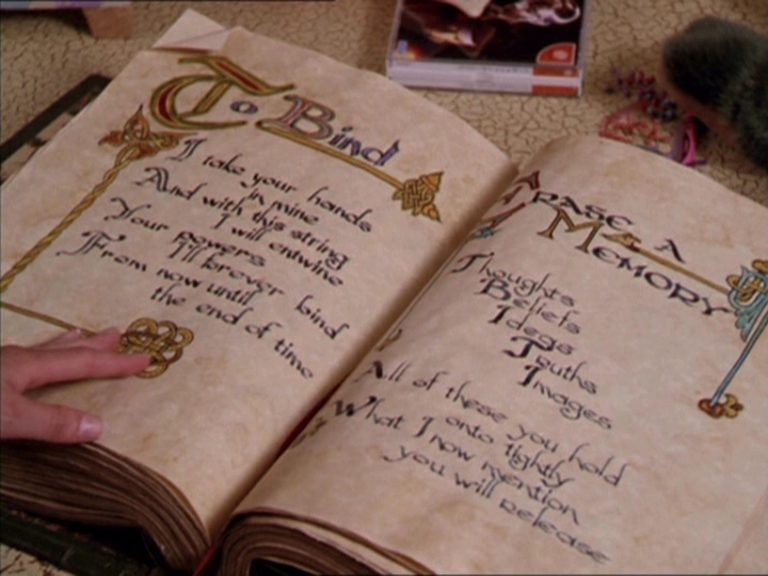 To Bind
I take your hands
in mine
And with this string
I will entwine
Your powers
I'll forever bind
From now until
the end of time
Erase A
Memory
Thoughts
Beliefs
Ideas
Truths
Images
All of these you hold
onto tightly
What I now mention
you will release